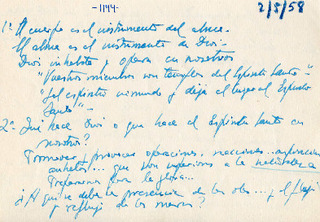 -1144-
2/5/58
1º El cuerpo es el instrumento del alma.
El alma es el instrumento de Dios-
Dios inhabita y opera en nosotros
"Vuestros miembros son templos del Espíritu Santo"-
"el espíritu inmundo y deje el lugar al Espíritu
Santo"-
2º- Qué hace Dios o que hace el Espíritu Santo en
nosotros?
Promover, provocar operaciones, reacciones.. aspiraciones
anhelos... que son superiores a la naturaleza
la gloria...
A qué se debe la presencia de las olas... y el flujo
y reflujo de los mares?